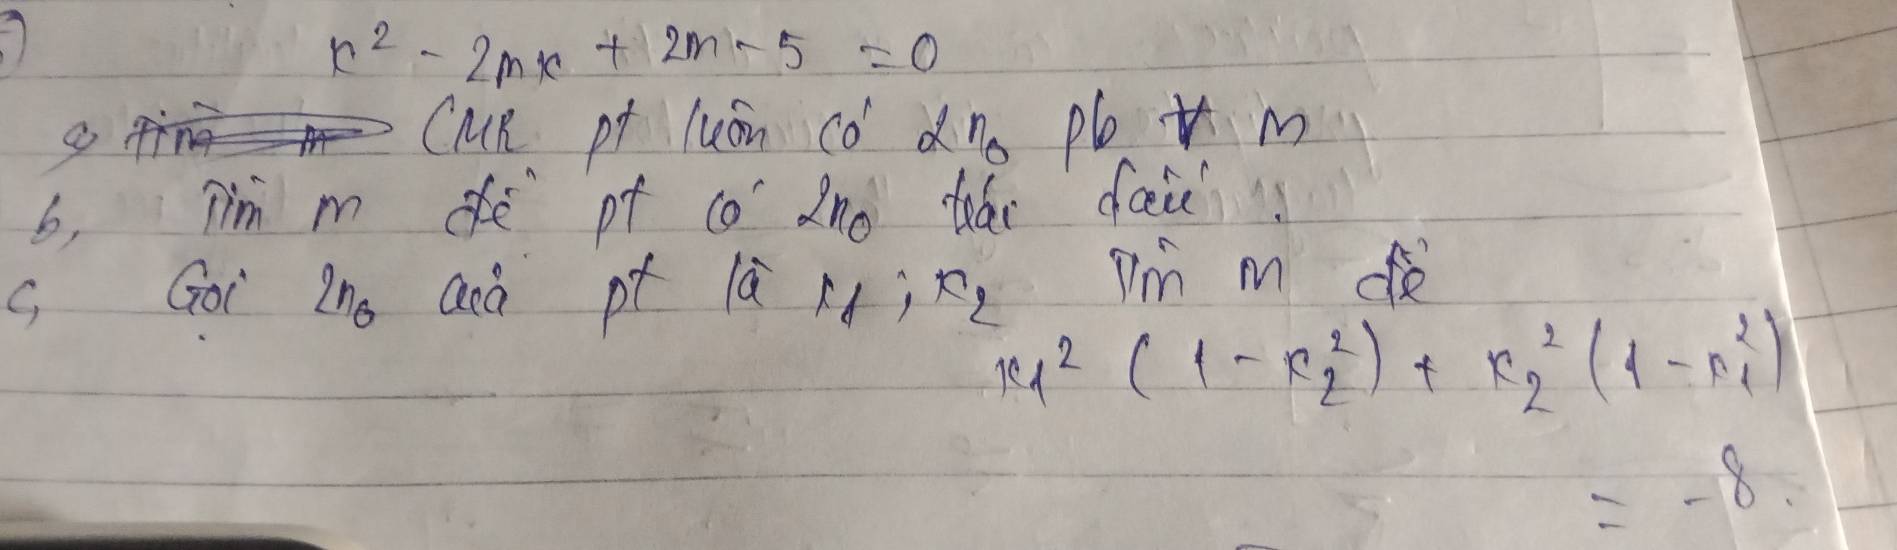 x² - 2mx + 2m - 5 = 0
a, CMR pt luôn có 2n₀ pb ∀ m
b, Tìm m để pt có 2n₀ trái dấu.
c, Gọi 2n₀ của pt là x₁ ; x₂ Tìm m để
x₁² (1 - x₂²) + x₂² (1 - x₁²)
= -8.